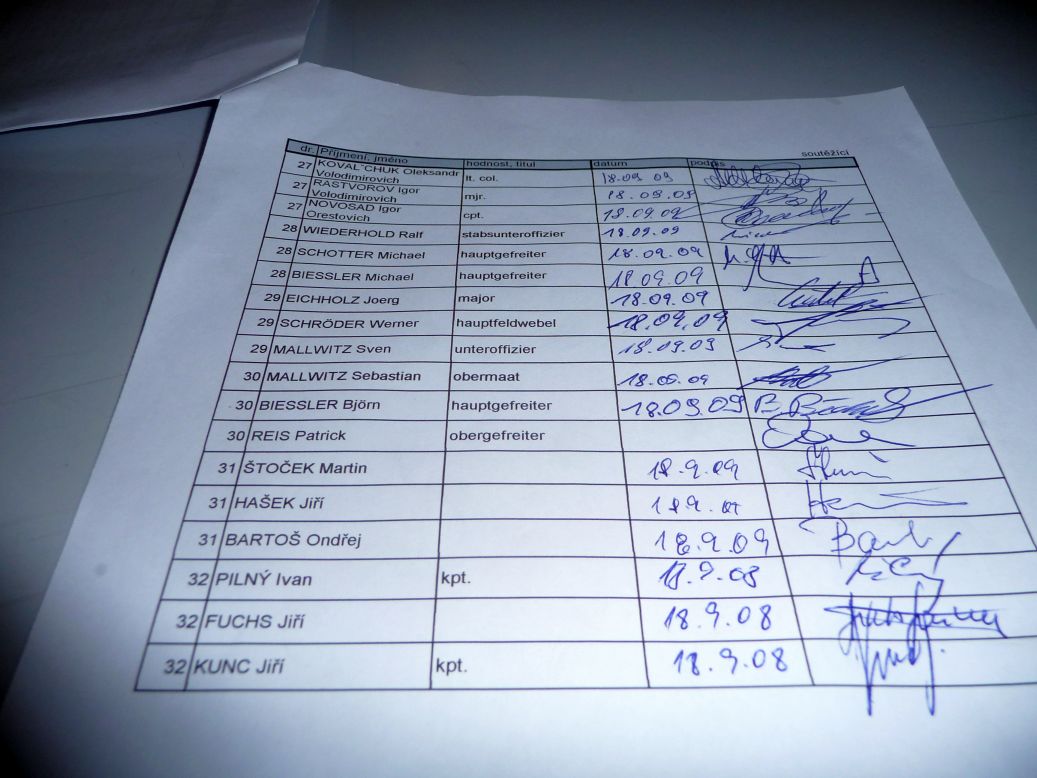 soutěžící
dr. Příjmení, jméno hodnost, titul datum podpis
27 KOVAL´CHUK Oleksandr Volodimirovich lt. col. 18.09 09
27 RASTVOROV Igor Volodimirovich mjr. 18.09.09
27 NOVOSAD Igor Orestovich cpt. 18.09.09
28 WIEDERHOLD Ralf stabsunteroffizier 18.09.09
28 SCHOTTER Michael hauptgefreiter 18.09.09
28 BIESSLER Michael hauptgefreiter 18.09.09
29 EICHHOLZ Joerg major 18.09.09
29 SCHRÖDER Werner hauptfeldwebel 18.09.09
29 MALLWITZ Sven unteroffizier 18.09.09
30 MALLWITZ Sebastian obermaat 18.09.09
30 BIESSLER Björn hauptgefreiter 18.09.09
30 REIS Patrick obergefreiter
31 ŠTOČEK Martin 18.9.09
31 HAŠEK Jiří
31 BARTOŠ Ondřej 18.9.09
32 PILNÝ Ivan kpt. 18.9.08
32 FUCHS Jiří 18.9.08
32 KUNC Jiří kpt. 18.9.08